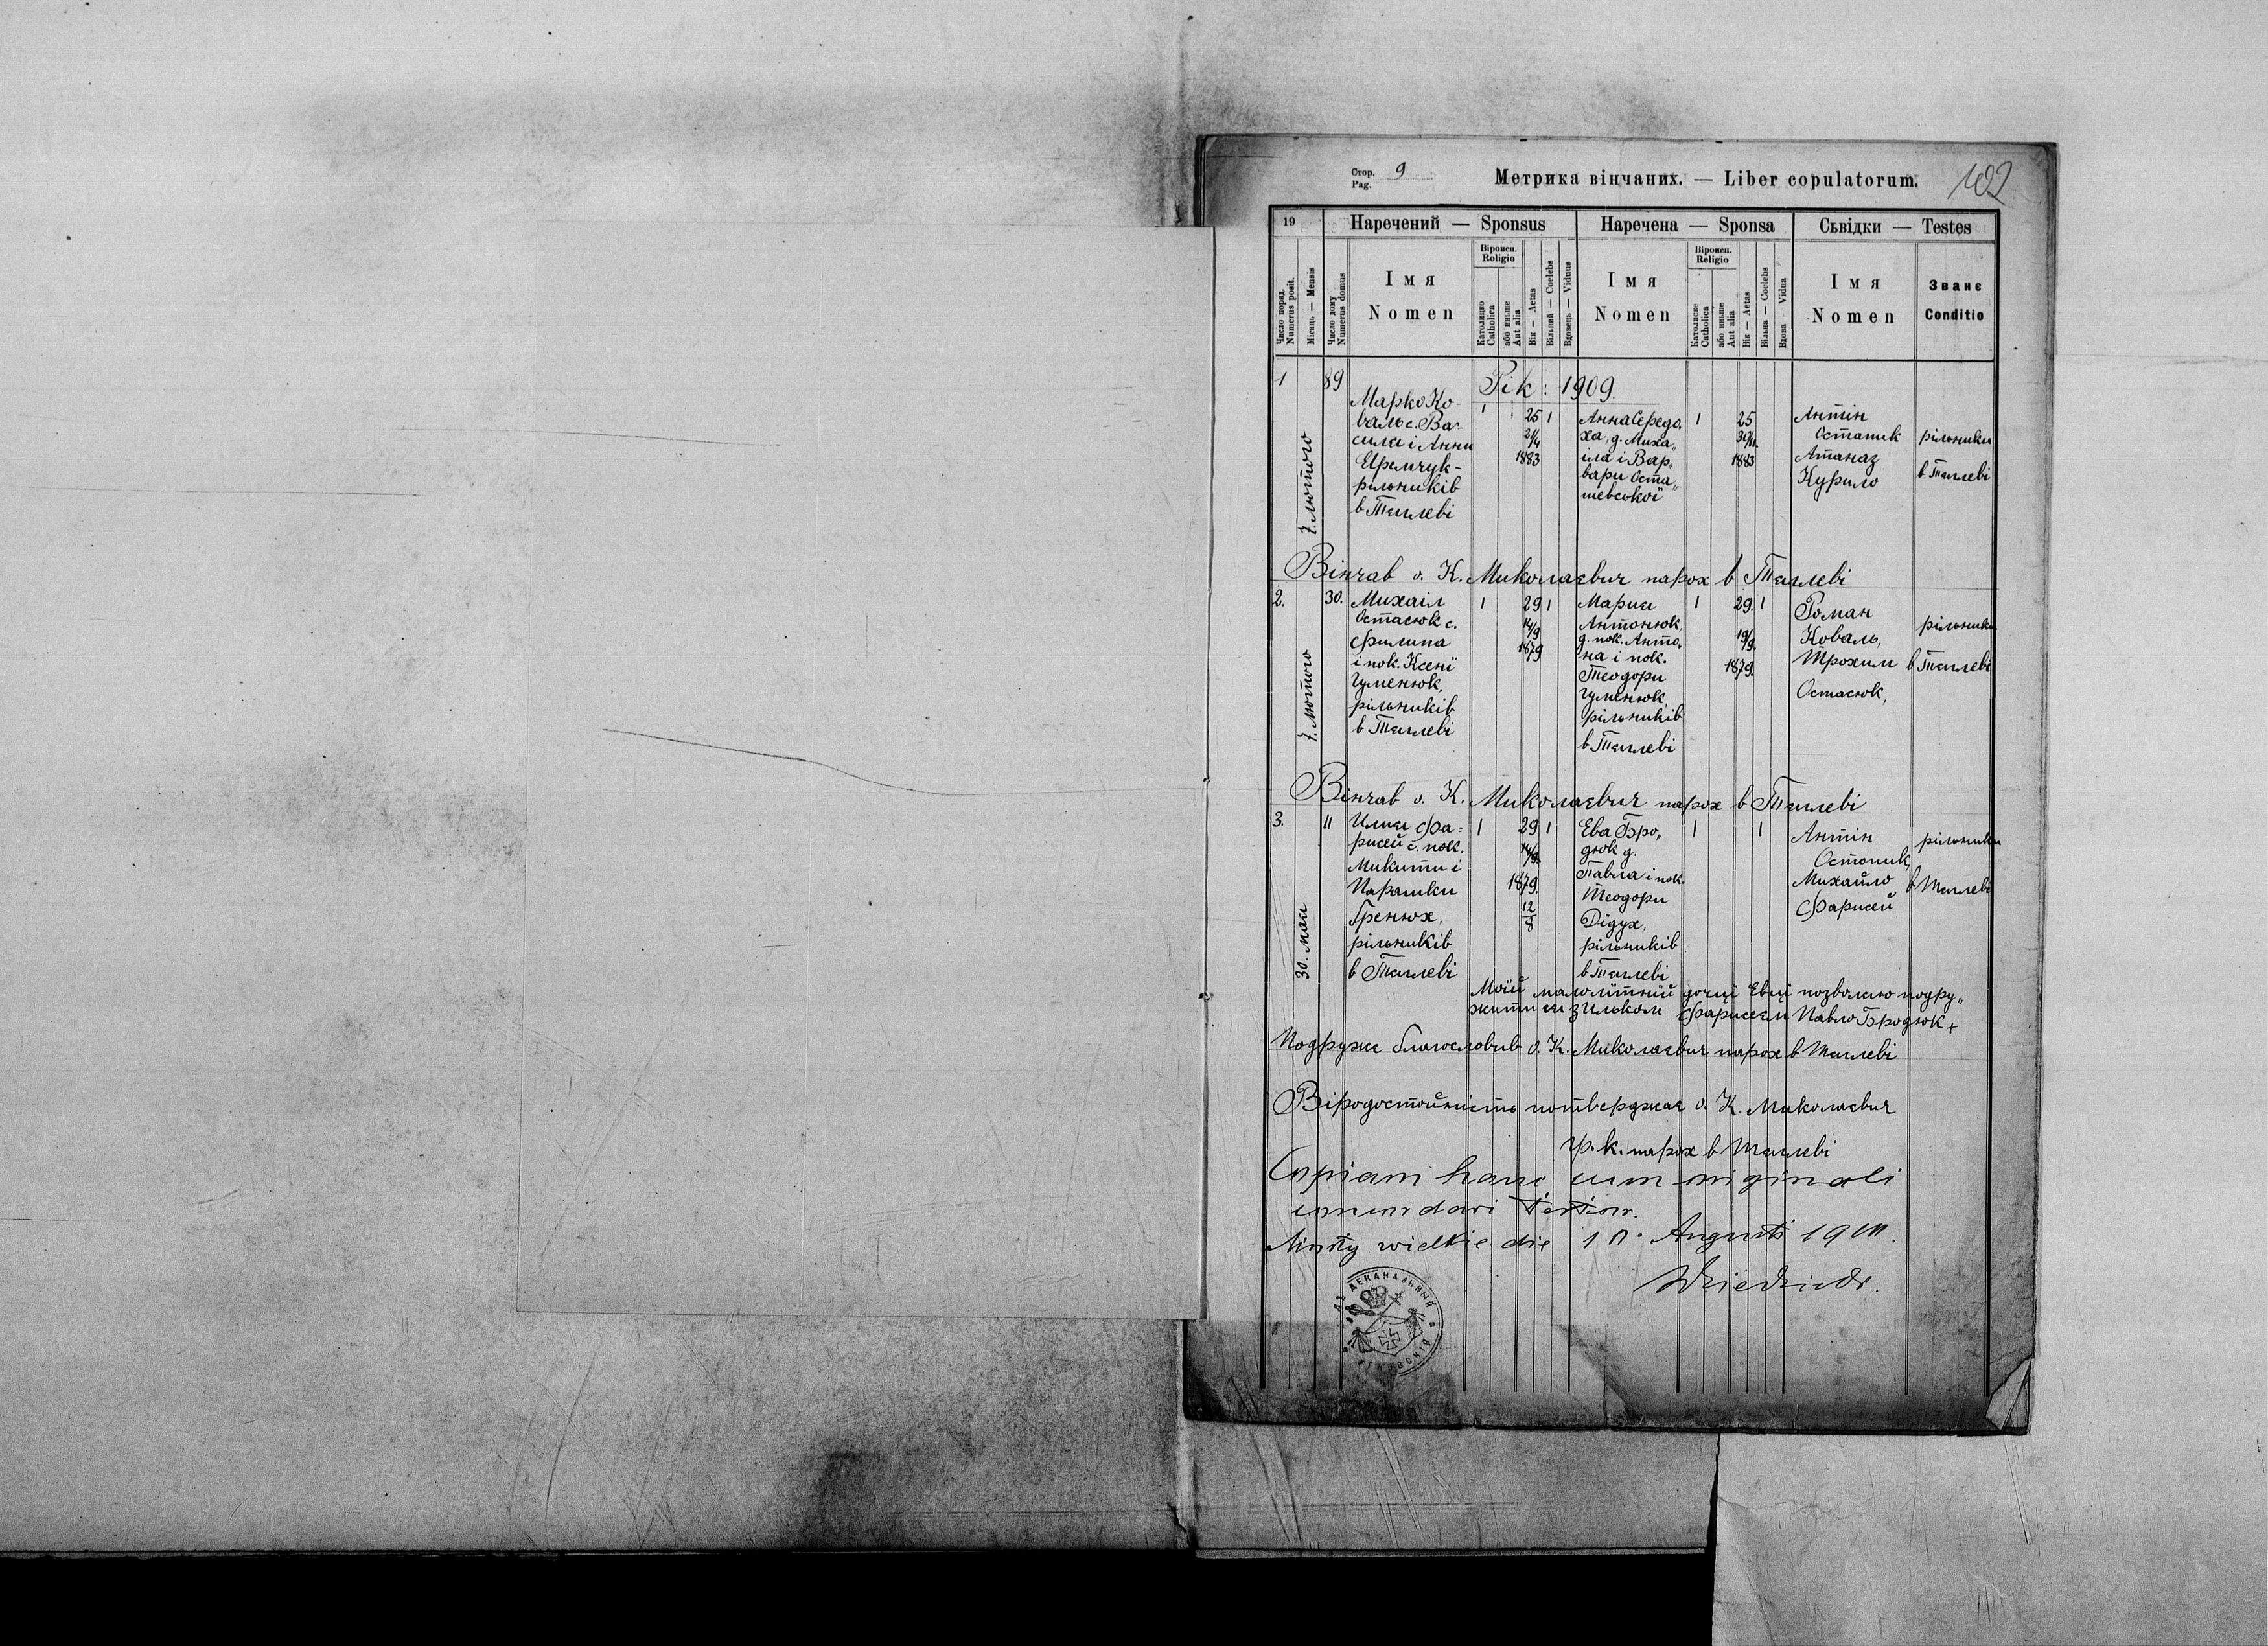 Стор. 9
Pag.
Метрика вінчаних. — Liber copulatorum.
102
19
Наречений — Sponsus
Наречена — Sponsa
Сьвідки — Testes
Число поряд.
Numerus posit.
Місяць — Mensis
Число дому
Numerus domus
Імя
Nomen
Віроисп.
Religio
Католицке
Catholica
або иньше
Aut alia
Вік — Aetas
Вільний — Coelebs
Вдовець — Viduus
Імя
Nomen
Віроисп.
Religio
Католицке
Catholica
або иньше
Aut alia
Вік — Aetas
Вільна — Coelebs
Вдова Vidua
Імя
Nomen
Званє
Conditio
Рік: 1909.
1
7. лютого
89
Марко Ко-
валь с. Ва-
силя і Анни
рільників
в Тяглеві
1
25
21/4
1883
1
Анна Середо,,
ха, д. Миха,,
іла і Вар,,
вари Оста,,
шевської
1
25
1883
Антін
Остапик
Атаназ
Курило
рільники
в Тяглеві
Вінчав о. К. Миколаєвич парох в Тяглеві
2.
7. лютого
30.
Михаіл
Остасюк с.
Филипа
і пок. Ксені
Гуменюк,
рільників
в Тяглеві
1
29
14/9
1879
1
Мария
Антонюк,
д. пок. Анто,,
на і пок.
Теодори
Гуменюк,
рільників
в Тяглеві
1
29.
19/9.
1879.
1
Роман
Коваль,
Трохим
Остасюк,
рільники
в Тяглеві
Вінчав о. К. Миколаєвич парох в Тяглеві
3.
30. мая
11
Илия Фа=
рисей с. пок.
Микити і
Парашки
Гренюх,
рільників
в Тяглеві
1
29
14/9.
1879.
12/8
1
Ева Бро,,
дюк д.
Павла і пок.
Теодори
Дідух,
рільників
в Тяглеві
1
1
Антін
Остопик,
Михайло
Фарисей
рільники
в Тяглеві
Моїй малолїтнїй дочцї Евцї позволяю подру,,
жити ся з Ильком Фарисеєм Павло Бродюк +
Подруже благословив о. К. Миколаєвич парох в Тяглеві
Віродостойність потверджає о. К. Миколаєвич
гр. к. парох в Тяглеві
Copiam hanc cum originali
concordari testor.
Mosty wielkie die Augusti
ДЕКАНАЛЬНЫЙ